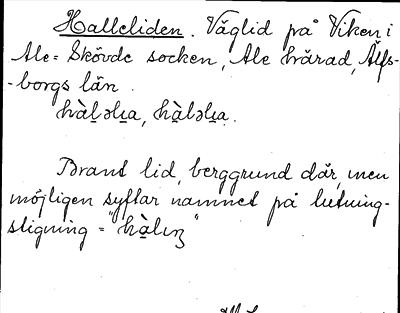 Halleliden. Väglid på Viken i
Ale-Skövde socken, Ale härad, Älfs-
-borgs län.
hàḷəlı̣a, hà̤ləlı̣a.
Brant lid, berggrund där, men
möjligen syftar namnet på lutning-
stigning = "hà̤lıŋ"